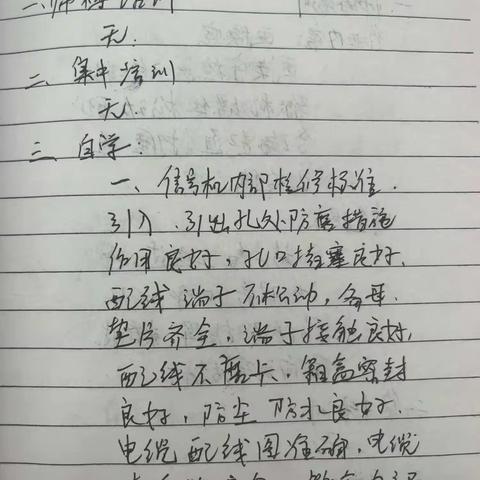 一、师傅培训
无.
二、集中培训
无.
三、自学.
一、信号机内部检修标准.
引入.引出孔处防磨措施
作用良好,孔口堵塞良好.
配线端子不松动,各母.
垫片齐全,端子接触良好,
配线不磨卡,箱盒密封
良好,防尘防水良好.
电缆配线图准确,电缆